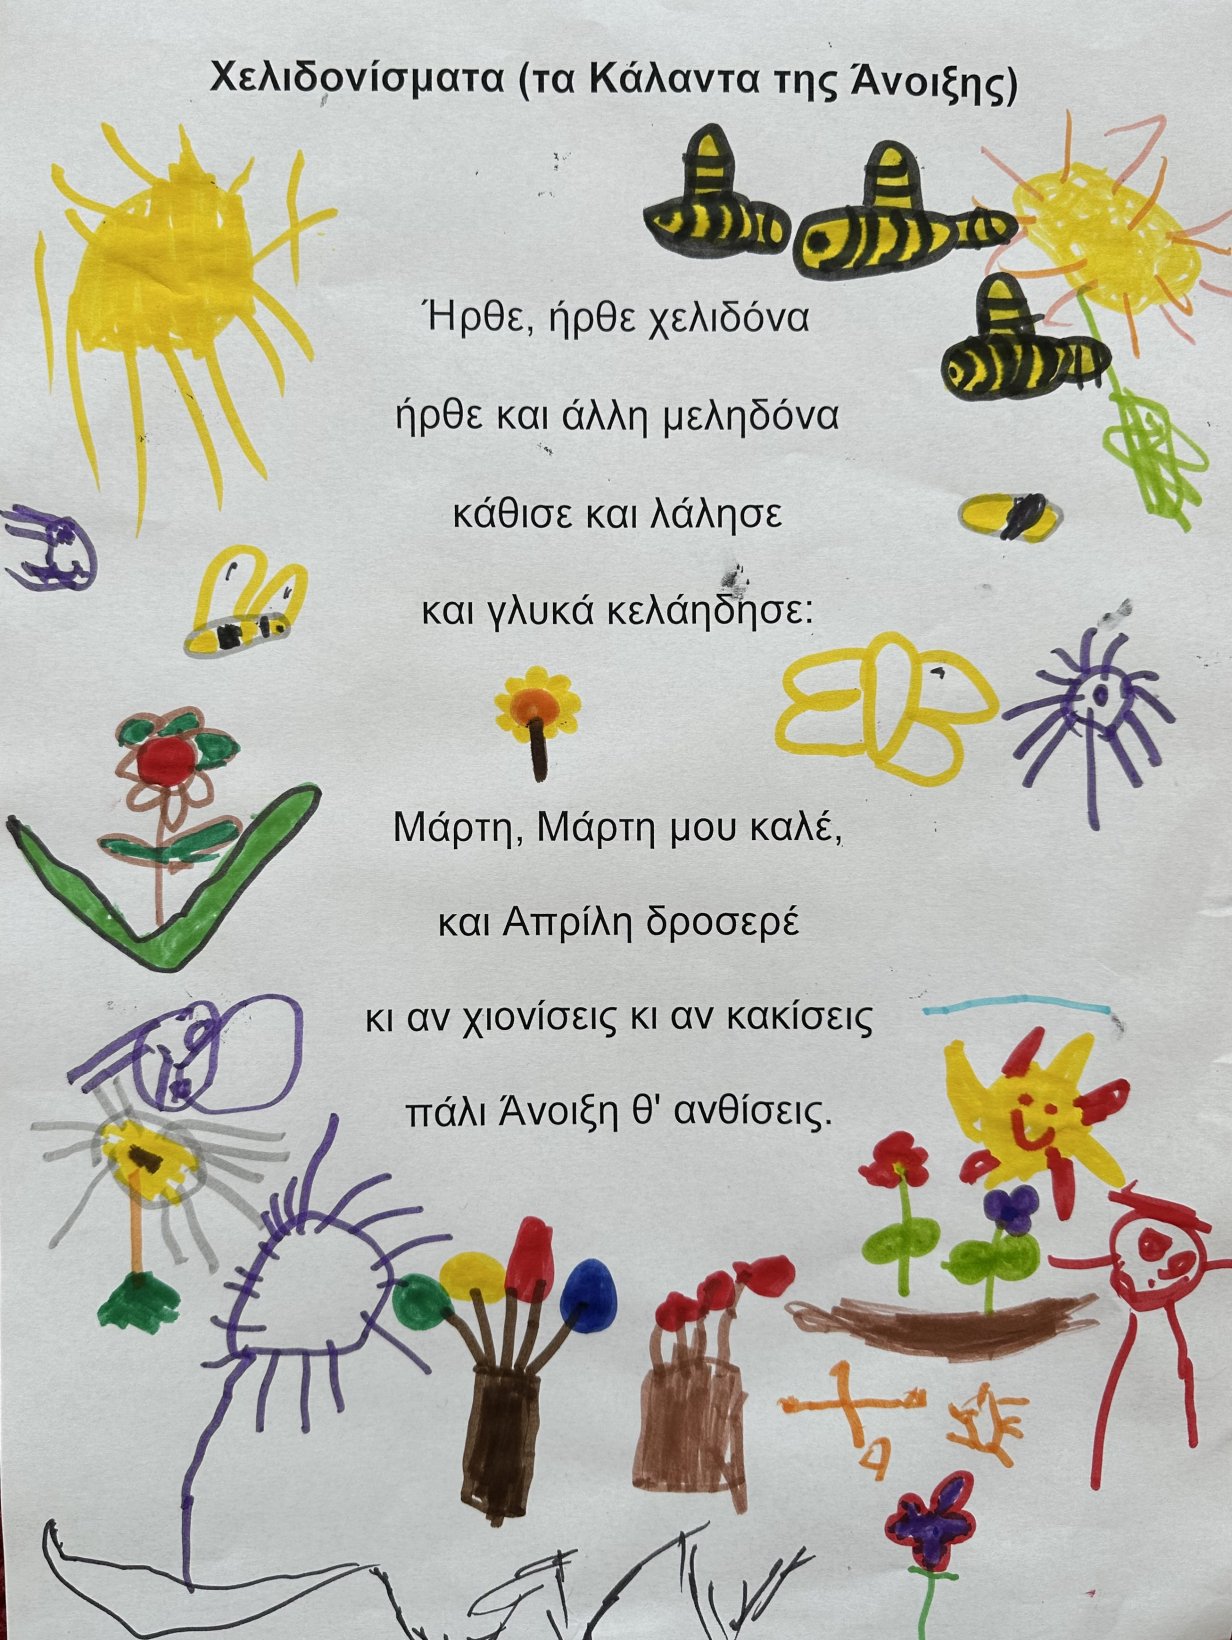 Χελιδονίσματα (τα Κάλαντα της Άνοιξης)
Ήρθε, ήρθε χελιδόνα
ήρθε και άλλη μεληδόνα
κάθισε και λάλησε
και γλυκά κελάηδησε:
Μάρτη, Μάρτη μου καλέ,
και Απρίλη δροσερέ
κι αν χιονίσεις κι αν κακίσεις
πάλι Άνοιξη θ' ανθίσεις.